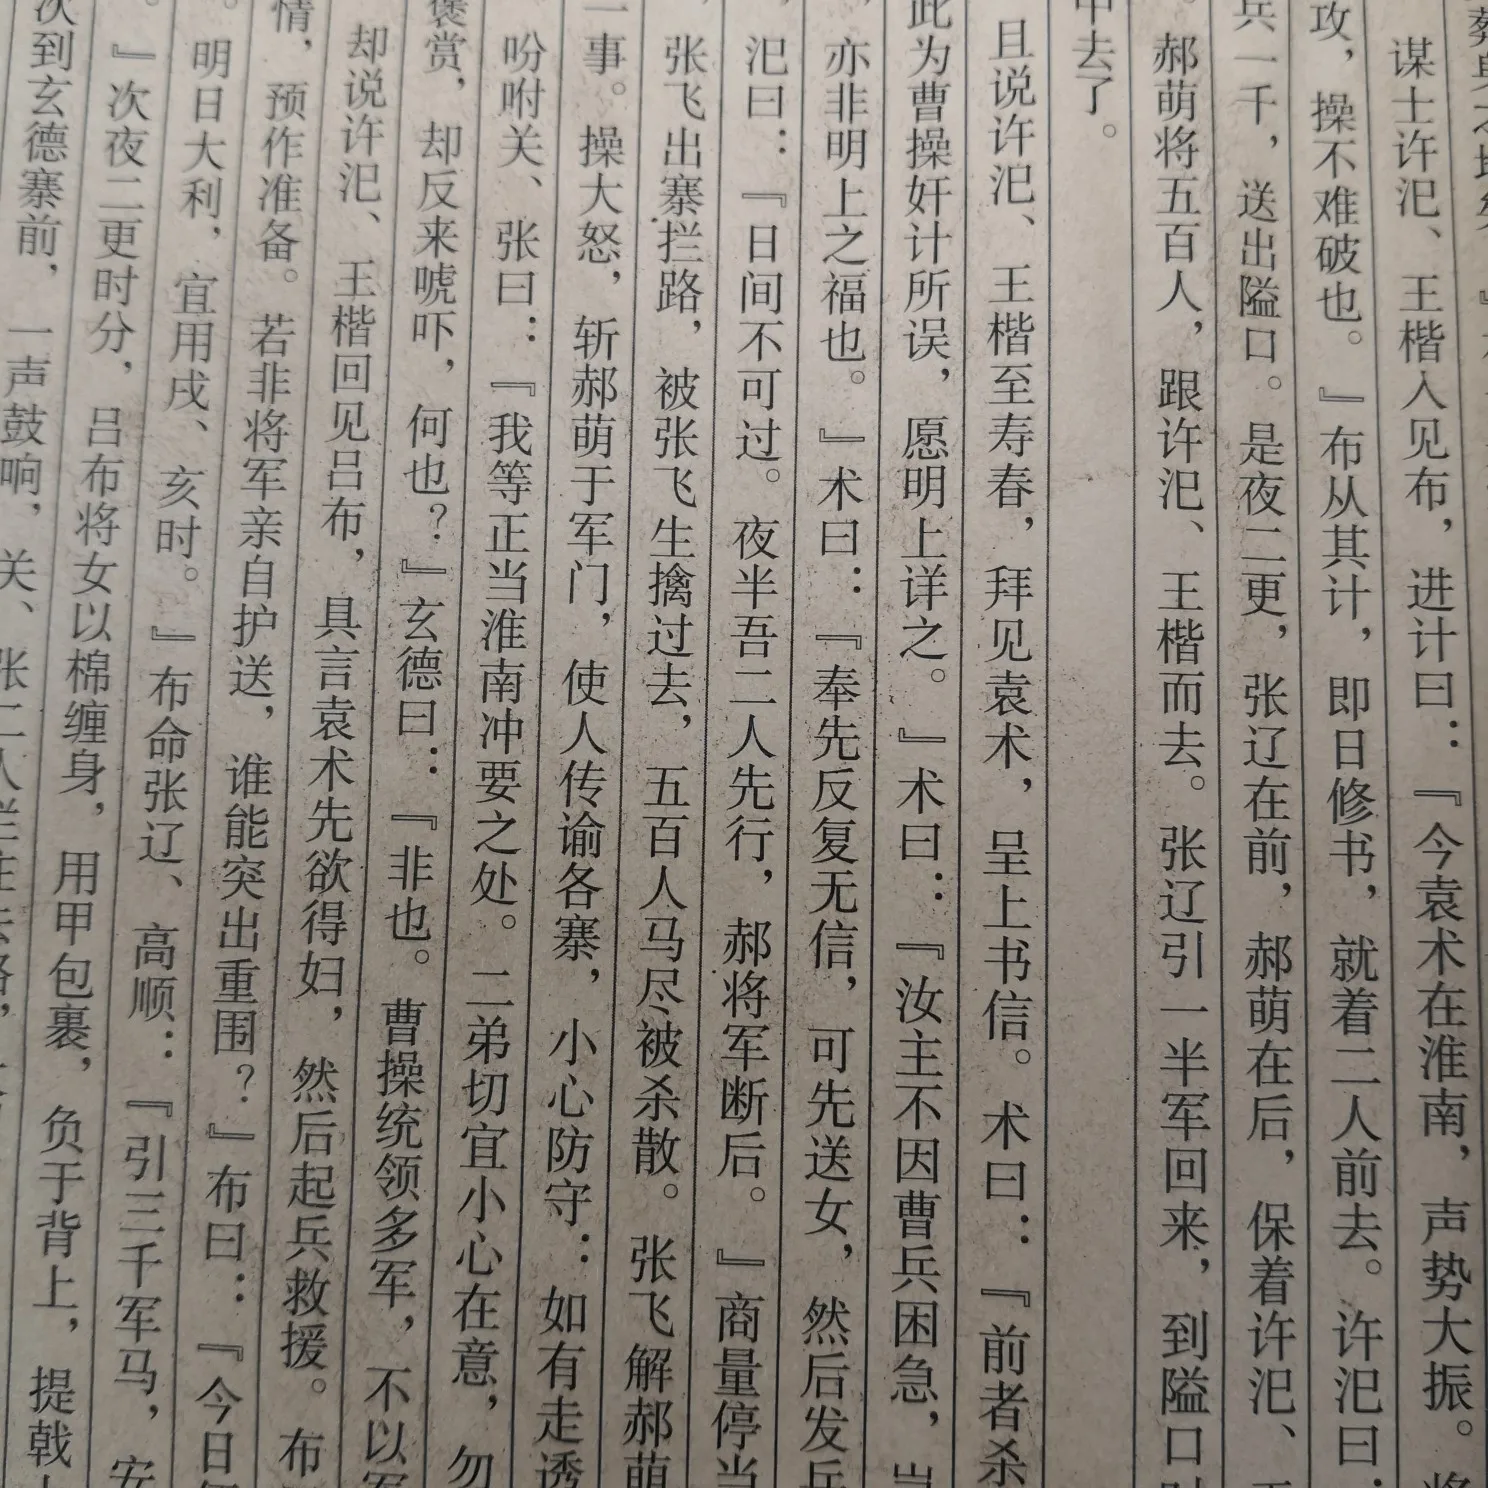 谋士许汜、王楷入见布，进计曰：『今袁术在淮南，声势大振。
攻，操不难破也。』布从其计，即日修书，就着二人前去。许汜曰：
兵一千，送出隘口。是夜二更，张辽在前，郝萌在后，保着许汜、
郝萌将五百人，跟许汜、王楷而去。张辽引一半军回来，到隘口
中去了。
且说许汜、王楷至寿春，拜见袁术，呈上书信。术曰：『前者杀
此为曹操奸计所误，愿明上详之。』术曰：『汝主不因曹兵困急，
亦非明上之福也。』术曰：『奉先反复无信，可先送女，然后发兵
汜曰：『日间不可过。夜半吾二人先行，郝将军断后。』商量停当
张飞出寨拦路，被张飞生擒过去，五百人马尽被杀散。张飞解郝萌
一事。操大怒，斩郝萌于军门，使人传谕各寨，小心防守：如有走诱
吩咐关、张曰：『我等正当淮南冲要之处。二弟切宜小心在意，勿
褒赏，却反来唬吓，何也？』玄德曰：『非也。曹操统领多军，不以军
却说许汜、王楷回见吕布，具言袁术先欲得妇，然后起兵救援。布
情，预作准备。若非将军亲自护送，谁能突出重围？』布曰：『今日
明日大利，宜用戌、亥时。』布命张辽、高顺：『引三千军马，安
』次夜二更时分，吕布将女以棉缠身，用甲包裹，负于背上，提戟
次到玄德寨前，一声鼓响，关、张二人拦住去路，